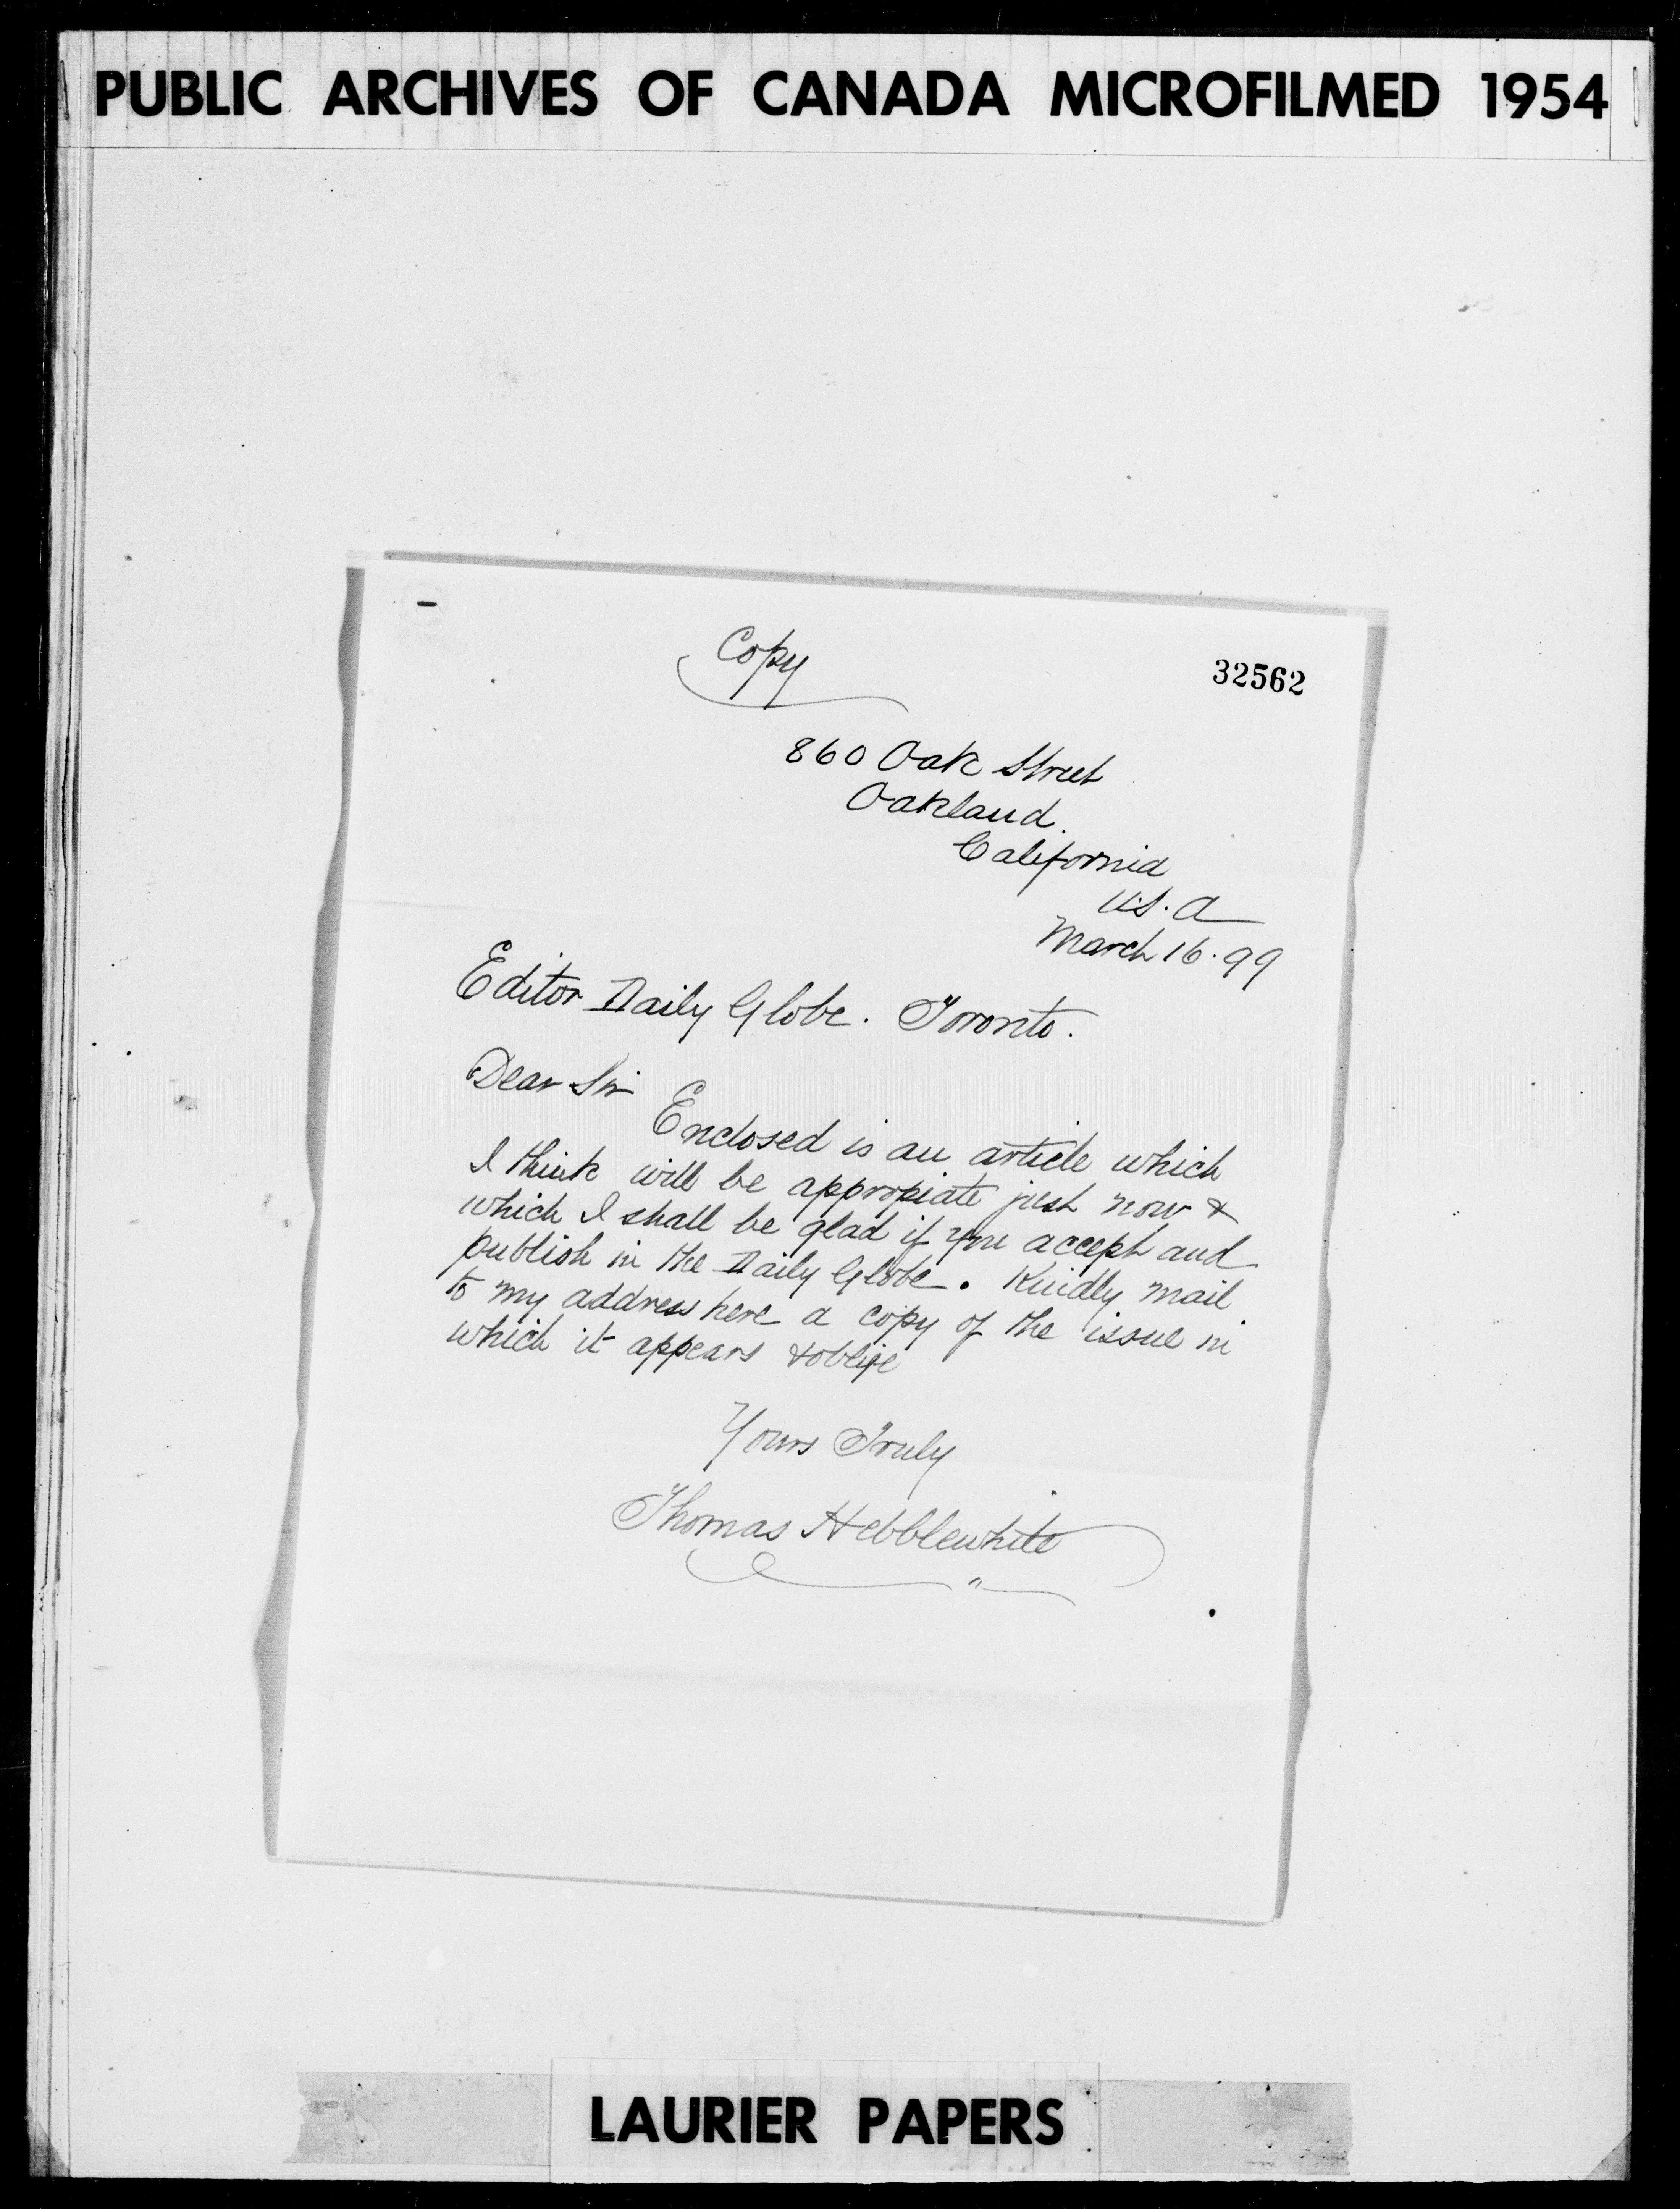 PUBLIC ARCHIVES OF CANADA MICROFILMED 1954
Copy
32562
860 Oak Street
Oakland.
California
U.S.A
March 16.99
Editor Daily Globe. Toronto.
Dear Sir
Enclosed is an article which
I think will be appropiate just now &
which I shall be glad if you accept and
publish in the Daily Globe. Kindly mail
to my address here a copy of the issue in
which it appears & oblige
Yours Truly
Thomas Hebblewhite
LAURIER PAPERS